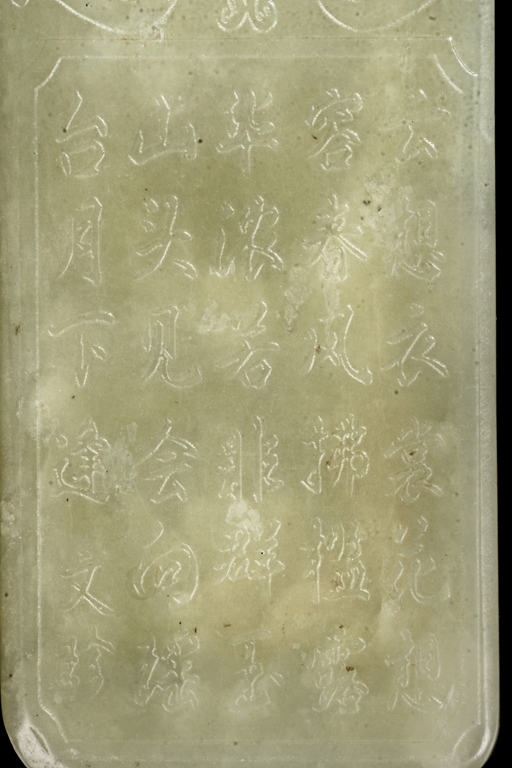 云想衣裳花想
容春风拂槛露
华浓若非群玉
山头见会向瑶
台月下逢 文